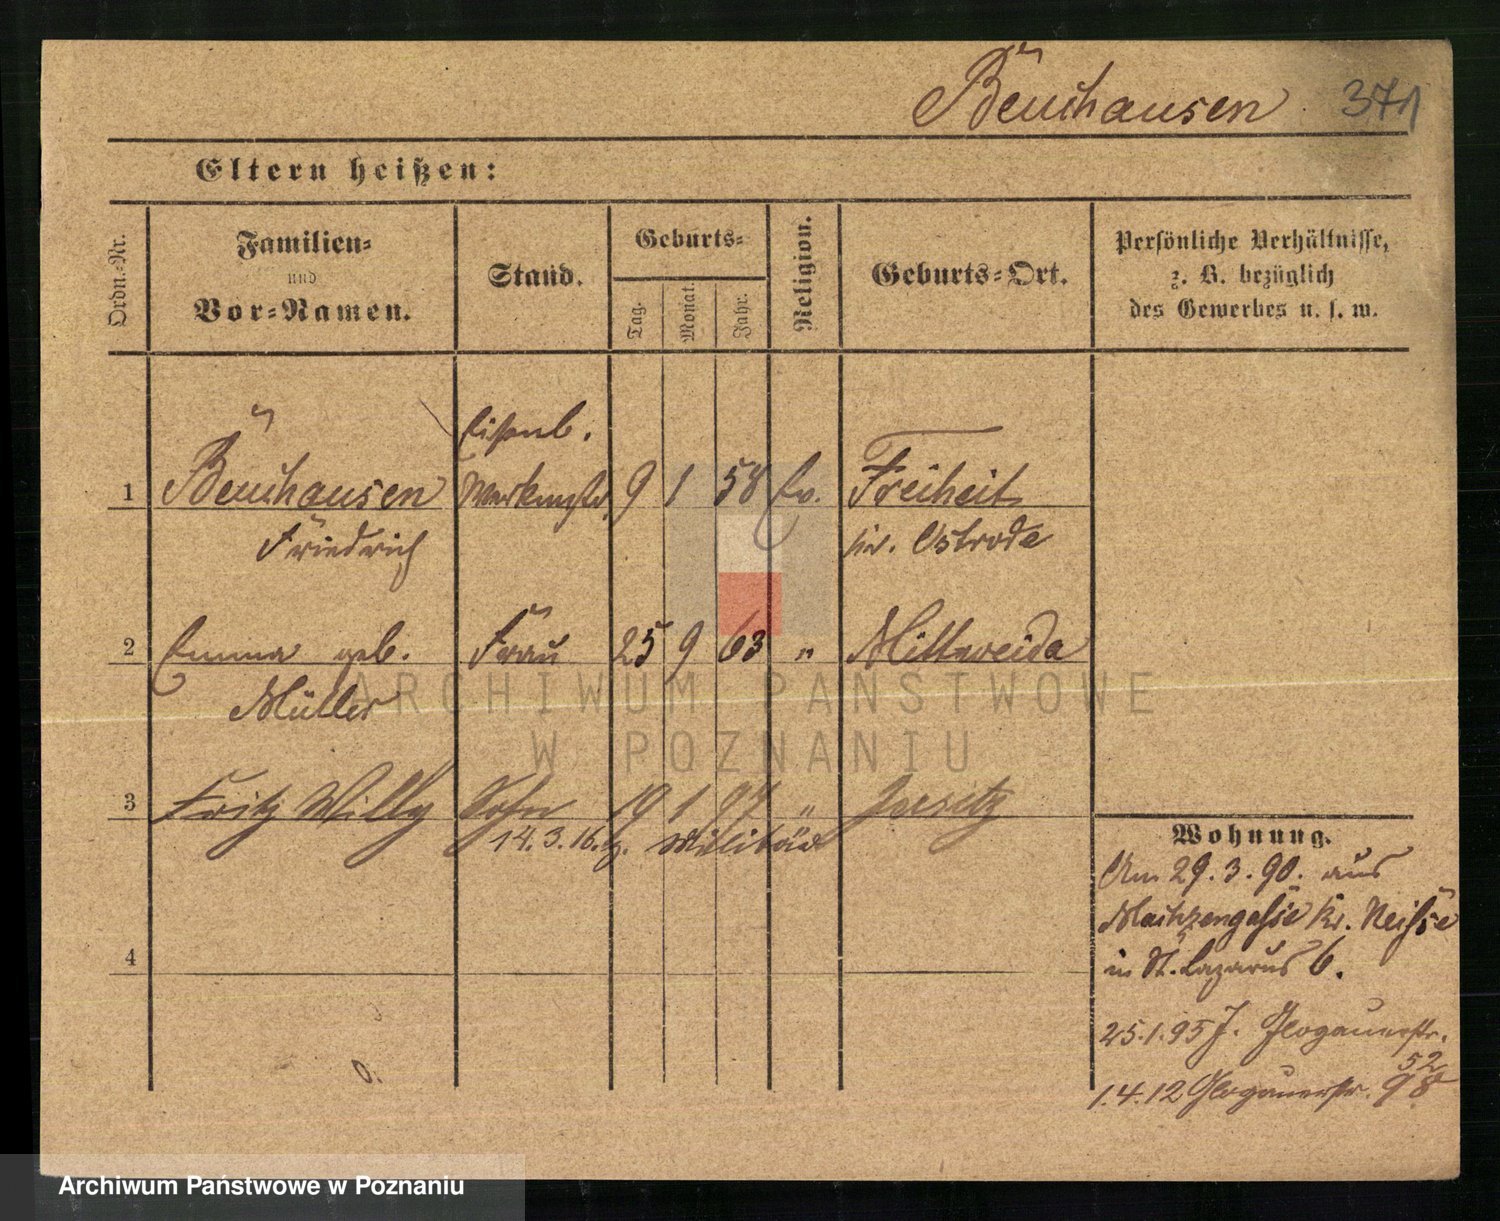 Beushausen 371
Eltern heißen:
Ordn.-Nr.
Familien-
und
Vor-Namen.
Stand.
Geburts-
Tag.
Monat.
Jahr.
Religion.
Geburts-Ort.
Persönliche Verhältnisse,
z. B. bezüglich
des Gewerbes u. s. w.
Eisenb.
1 Beushausen Werkmstr. 9 1 58 Ev. Freiheit
Friedrich Kr. Osterode
2 Emma geb. Frau 25 9 63 " Mittweida
Müller
3 Fritz Willy Sohn 19 1 97 " Jersitz
14.3.16. z. Militär
4
Wohnung.
Am 29.3.90. aus
Kr. Neisse
in St. Lazarus 6.
25.1.95 J. Glogauerstr.
52
1.4.12 Glogauerstr. 98
ARCHIWUM PAŃSTWOWE
W POZNANIU
Archiwum Państwowe w Poznaniu